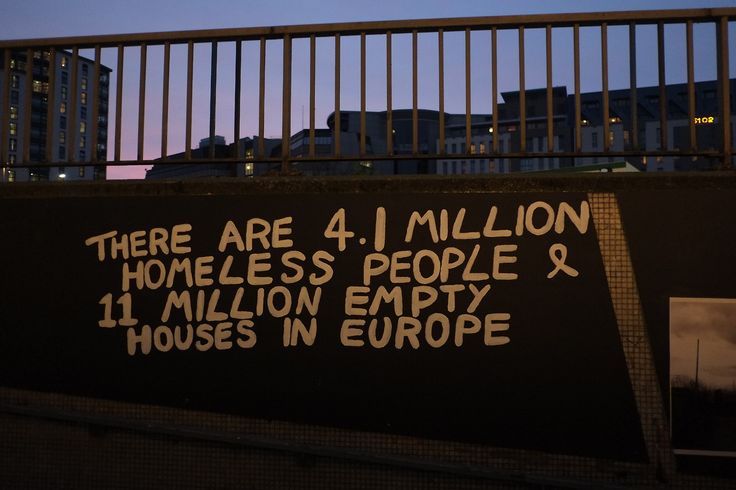 THERE ARE 4.1 MILLION
HOMELESS PEOPLE &
11 MILLION EMPTY
HOUSES IN EUROPE